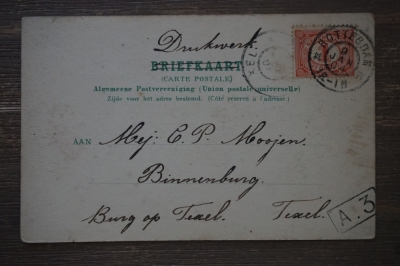 Drukwerk
BRIEFKAART
(CARTE POSTALE)
Algemeene Postvereeniging (Union postale universelle)
Zijde voor het adres bestemd. (Côté réservé à l'adresse.)
AAN Mej: C. P. Moojen.
Binnenburg.
Burg op Texel. Texel.
A.3
ROTTERDAM